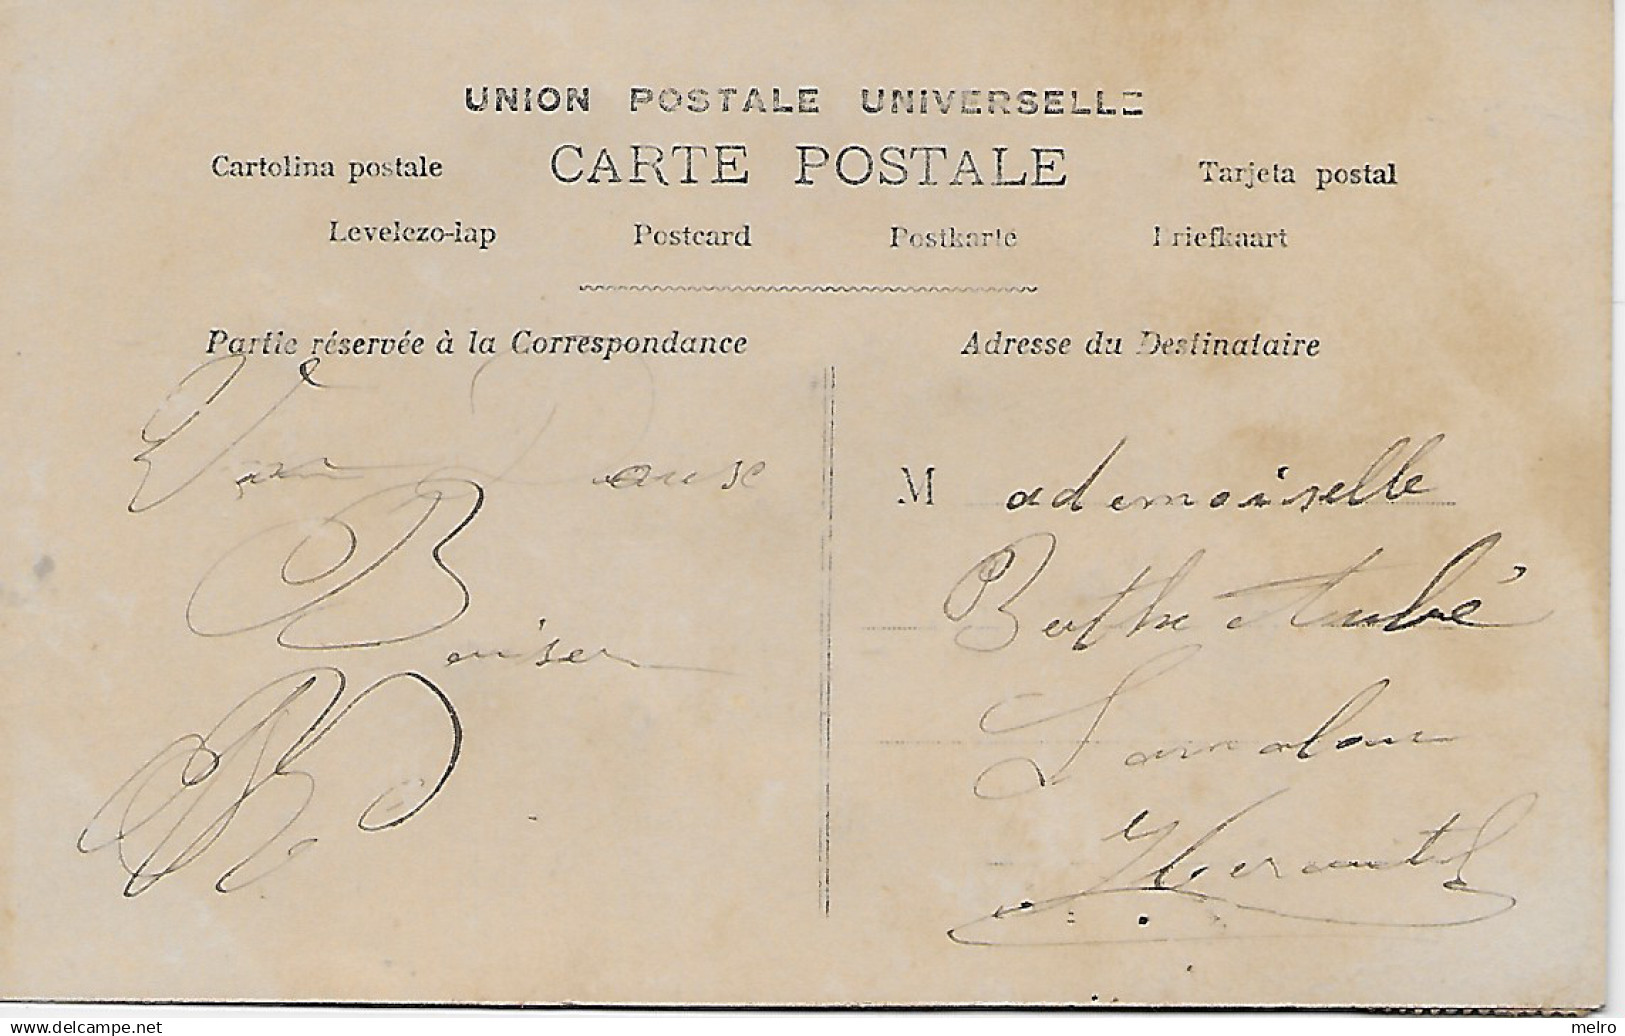 UNION POSTALE UNIVERSELLE
Cartolina postale CARTE POSTALE Tarjeta postal
Levelezo-lap Postcard Postkarte Briefkaart
Partie réservée à la Correspondance
Adresse du Destinataire
Baiser
Mademoiselle
Berthe Aubé
Lamalou
Herault
www.delcampe.net
melro